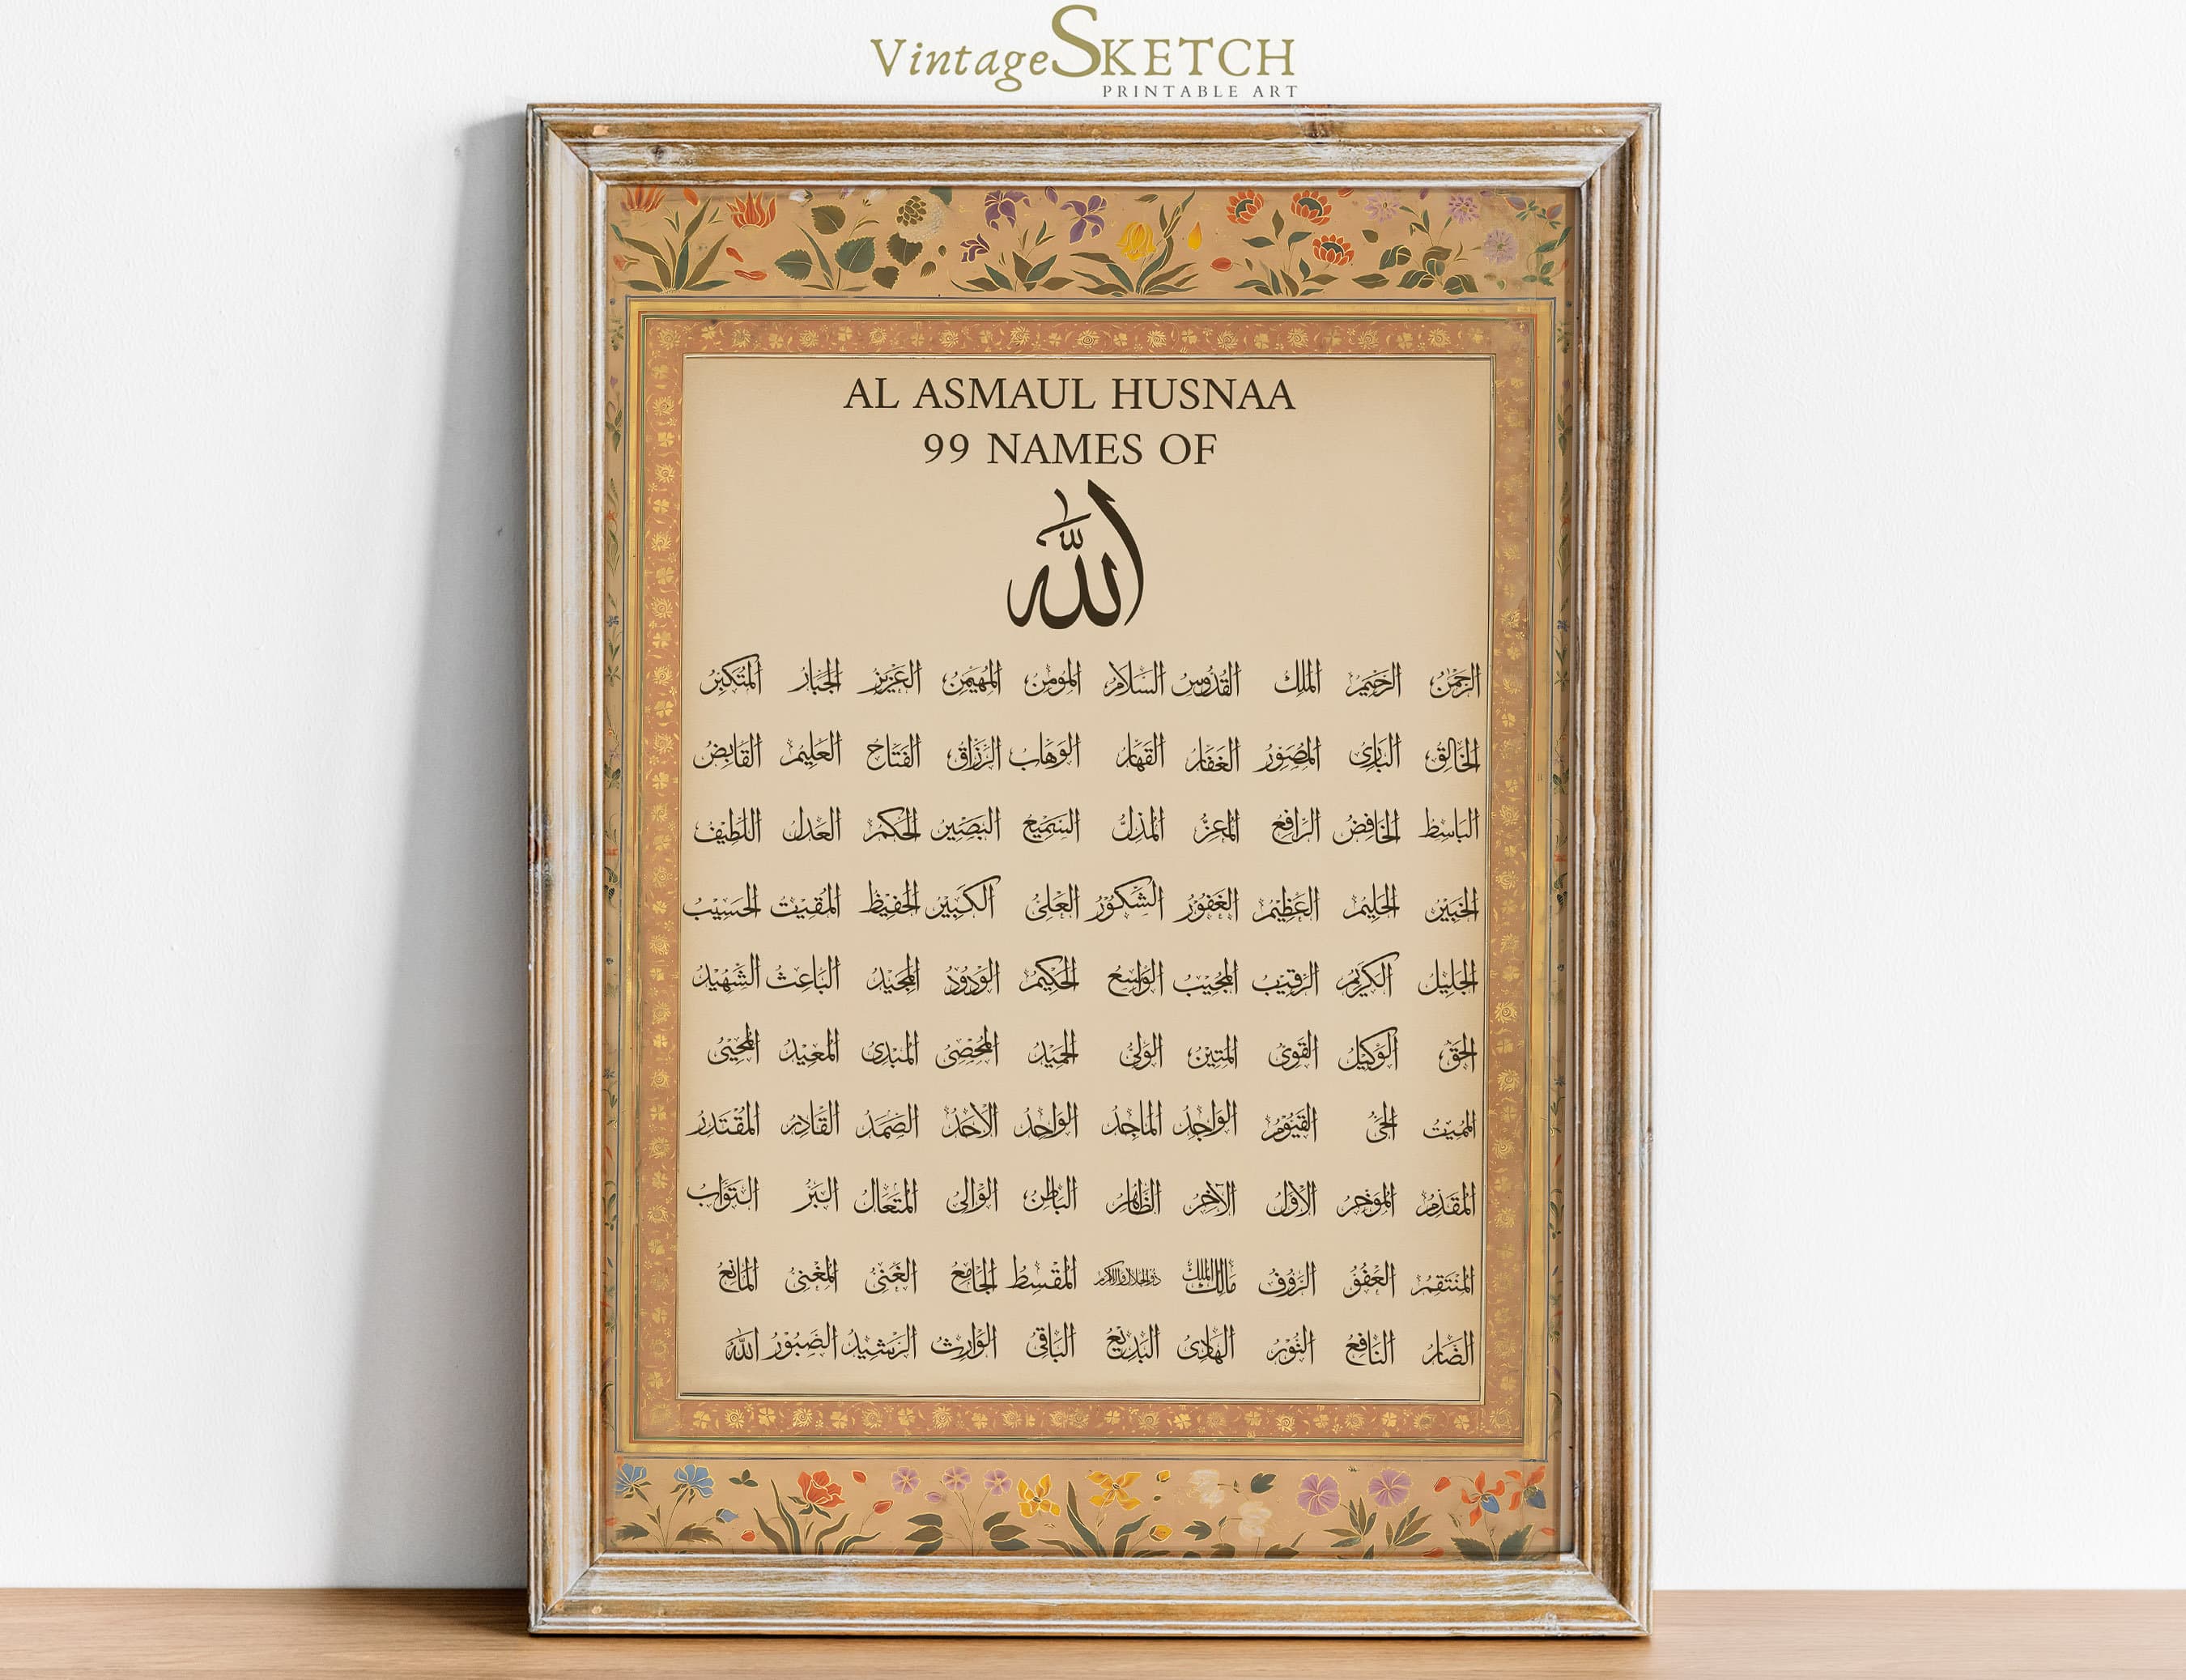 VintageSKETCH
PRINTABLE ART
AL ASMAUL HUSNAA
99 NAMES OF
الله
الرَّحْمٰن الرَّحِيْم المَلِك القُدُّوس السَّلَام المُؤمِن المُهَيْمِن العَزِيز الجَبَّار المُتَكَبِّر
الخَالِق البَارِئ المُصَوِّر الغَفَّار القَهَّار الوَهَّاب الرَّزَّاق الفَتَّاح العَلِيم القَابِض
البَاسِط الخَافِض الرَّافِع المُعِزّ المُذِلّ السَّمِيع البَصِير الحَكَم العَدْل اللَّطِيف
الخَبِير الحَلِيم العَظِيم الغَفُور الشَّكُور العَلِىّ الكَبِير الحَفِيظ المُقِيت الحَسِيب
الجَلِيل الكَرِيم الرَّقِيب المُجِيب الوَاسِع الحَكِيم الوَدُود المَجِيد البَاعِث الشَّهِيد
الحَقّ الوَكِيل القَوِىّ المَتِين الوَلِىّ الحَمِيد المُحْصِى المُبْدِئ المُعِيد المُحْيِى
المُمِيت الحَىّ القَيُّوم الوَاجِد المَاجِد الوَاحِد الأَحَد الصَّمَد القَادِر المُقْتَدِر
المُقَدِّم المُؤَخِّر الأَوَّل الآخِر الظَّاهِر البَاطِن الوَالِى المُتَعَال البَرّ التَّوَّاب
المُنْتَقِم العَفُوّ الرَّؤُوف مَالِك المُلْك ذو الجلال والإكرام المُقْسِط الجَامِع الغَنِىّ المُغْنِى المَانِع
الضَّار النَّافِع النُّور الهَادِى البَدِيع البَاقِى الوَارِث الرَّشِيد الصَّبُور الله